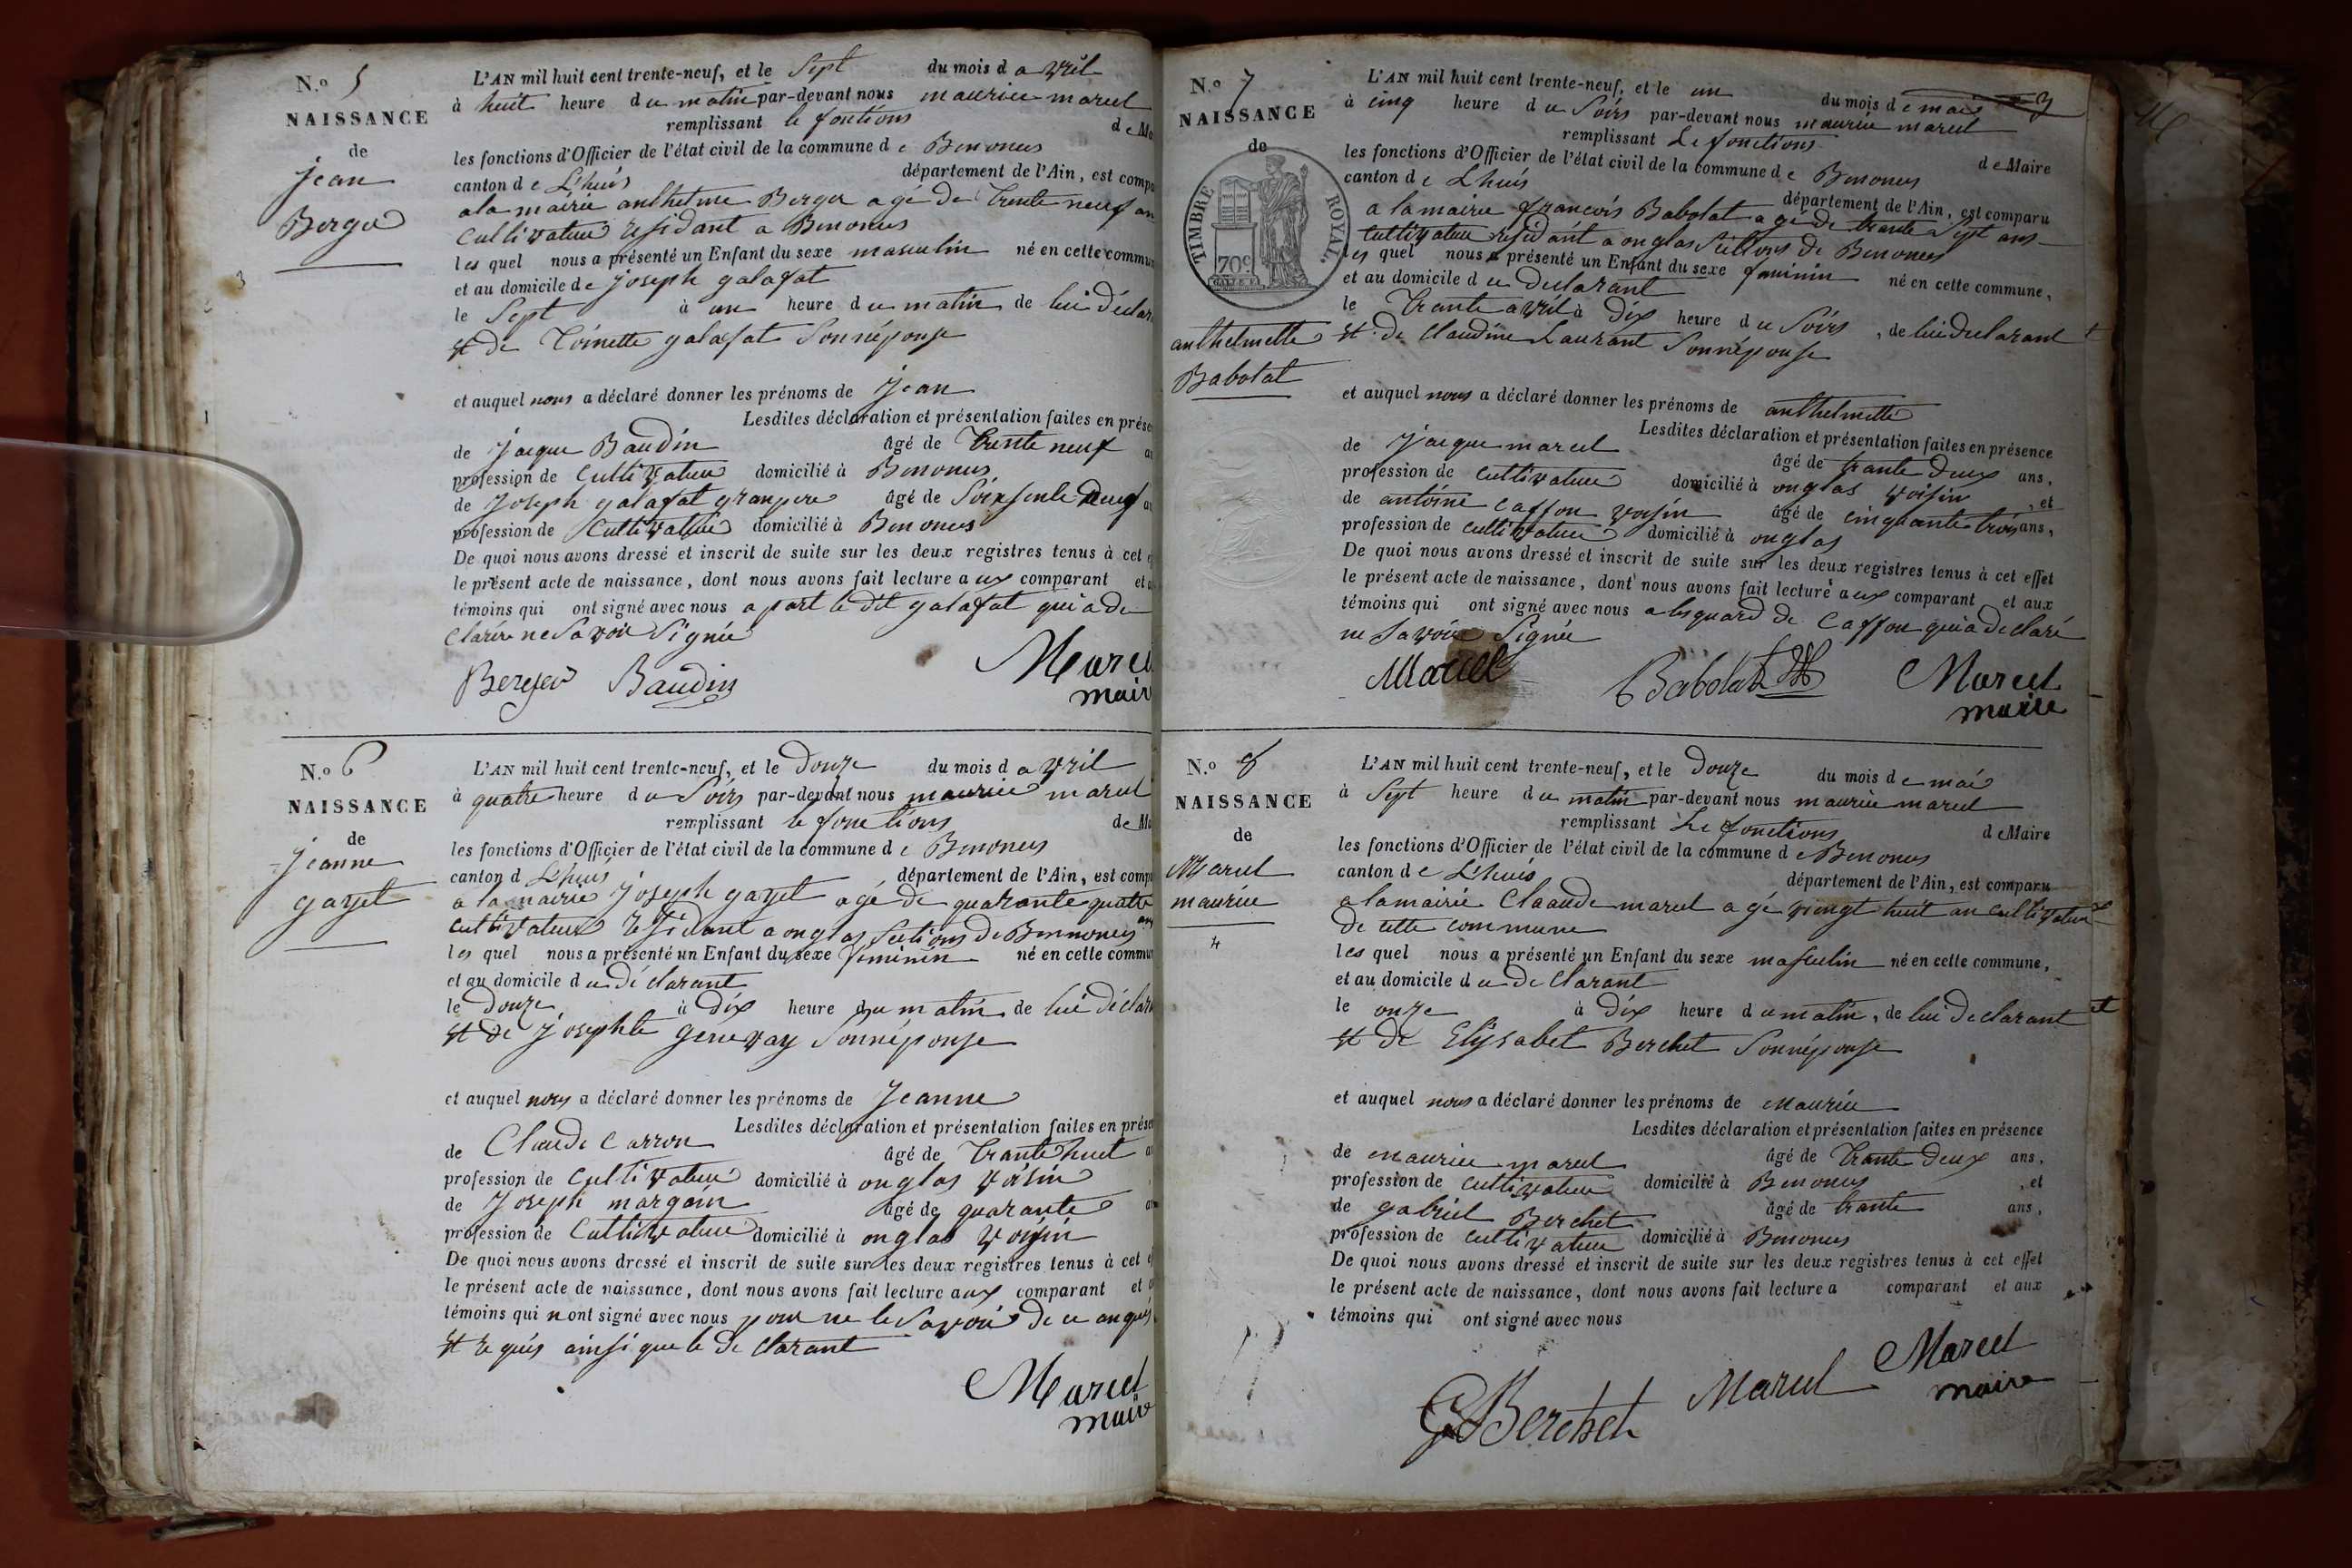 N.o 5
NAISSANCE
de
jean
Berger
L'AN mil huit cent trente-neuf, et le Sept du mois d avril
à huit heure du matin par-devant nous maurice marcel
remplissant le fontions de Ma
les fonctions d'Officier de l'état civil de la commune de Benonces
canton de Lhuis département de l'Ain, est compa
a la mairie anthelme Berger agé de Trente neuf an
Cultivateur residant a Benonces
les quel nous a présenté un Enfant du sexe masculin né en cette commun
et au domicile de joseph galafat
le Sept à un heure du matin de lui déclar
et de Toinette galafat Sonnépouse
et auquel nous a déclaré donner les prénoms de jean
Lesdites déclaration et présentation faites en prése
de jacque Baudin âgé de Trente neuf
profession de Cultivateur domicilié à Benonces
de joseph galafat granpere âgé de Soinsente neuf
profession de Cultivateur domicilié à Benonces
De quoi nous avons dressé et inscrit de suite sur les deux registres tenus à cet
le présent acte de naissance, dont nous avons fait lecture aux comparant et
témoins qui ont signé avec nous a part le dit galafat qui a de
clarére ne Savoir Signée
Berger Baudin Marcel
maire
N.o 6
NAISSANCE
de
jeanne
gayet
L'AN mil huit cent trente-neuf, et le Douze du mois d avril
à quatre heure du Soirs par-devant nous maurice marcel
remplissant le fonctions de Ma
les fonctions d'Officier de l'état civil de la commune de Benonces
canton d Lhuis département de l'Ain, est comp
a la mairie joseph gayet agé de quarante quatre
ans
cultivateur residant a onglas Sections de Bennonces
les quel nous a présenté un Enfant du sexe féminin né en cette commun
et au domicile du déclarant
le Douze à Dix heure du matin de lui déclar
et de josephte genevay Sonnépouse
et auquel nous a déclaré donner les prénoms de Jeanne
Lesdites déclaration et présentation faites en prése
de Claude Carron âgé de Trante huit
profession de Cultivateur domicilié à onglas voisin
de Joseph margain âgé de quarante
profession de Cultivateur domicilié à onglas voisin
De quoi nous avons dressé et inscrit de suite sur les deux registres tenus à cet
le présent acte de naissance, dont nous avons fait lecture aux comparant et
témoins qui nont signé avec nous pour ne le Savoir de ce anquis
et requis ainsi que le declarant
Marcel
maire
N.o 7
NAISSANCE
de
TIMBRE ROYAL.
70c
anthelmette
Babolat
L'AN mil huit cent trente-neuf, et le un du mois de mai
à cinq heure du Soirs par-devant nous maurice marcel
remplissant Le fonctions de Maire
les fonctions d'Officier de l'état civil de la commune de Benonces
canton de Lhuis département de l'Ain, est comparu
a la mairie francois Babolat agé de trante Sept ans
Cultivateur residant a onglas Sections de Benonces
les quel nous a présenté un Enfant du sexe feminin né en cette commune,
et au domicile du declarant
le Trante avril à Dix heure du Soirs, de lui declarant
et de Claudine Laurant Sonnépouse
et auquel nous a déclaré donner les prénoms de anthelmette
Lesdites déclaration et présentation faites en présence
de jacque marcel âgé de trante deux ans,
profession de cultivateur domicilié à onglas voisin, et
de antoine Caffon voisin âgé de cinquante trois ans,
profession de cultivateur domicilié à onglas
De quoi nous avons dressé et inscrit de suite sur les deux registres tenus à cet effet
le présent acte de naissance, dont nous avons fait lecture aux comparant et aux
témoins qui ont signé avec nous a lesquard de Caffon qui a declaré
ne Savoir Signée
Marcel Babolat Marcel
maire
N.o 8
NAISSANCE
de
Marcel
maurice
4
L'AN mil huit cent trente-neuf, et le Douze du mois de mai
à Sept heure du matin par-devant nous maurice marcel
remplissant Le fonctions de Maire
les fonctions d'Officier de l'état civil de la commune de Benonces
canton de Lhuis département de l'Ain, est comparu
a la mairie Claaude marcel agé vingt huit an cultivateur
de cette commune
les quel nous a présenté un Enfant du sexe masculin né en cette commune,
et au domicile du de Clarant
le onze à dix heure du matin, de lui declarant et
et de Elysabet Berchet Sonnépouse
et auquel nous a déclaré donner les prénoms de maurice
Lesdites déclaration et présentation faites en présence
de maurice marcel âgé de Trante Deux ans,
profession de cultivateur domicilié à Benonces, et
de gabriel Berchet âgé de trante ans,
profession de cultivateur domicilié à Benonces
De quoi nous avons dressé et inscrit de suite sur les deux registres tenus à cet effet
le présent acte de naissance, dont nous avons fait lecture a comparant et aux
témoins qui ont signé avec nous
G Berchet Marcel Marcel
maire